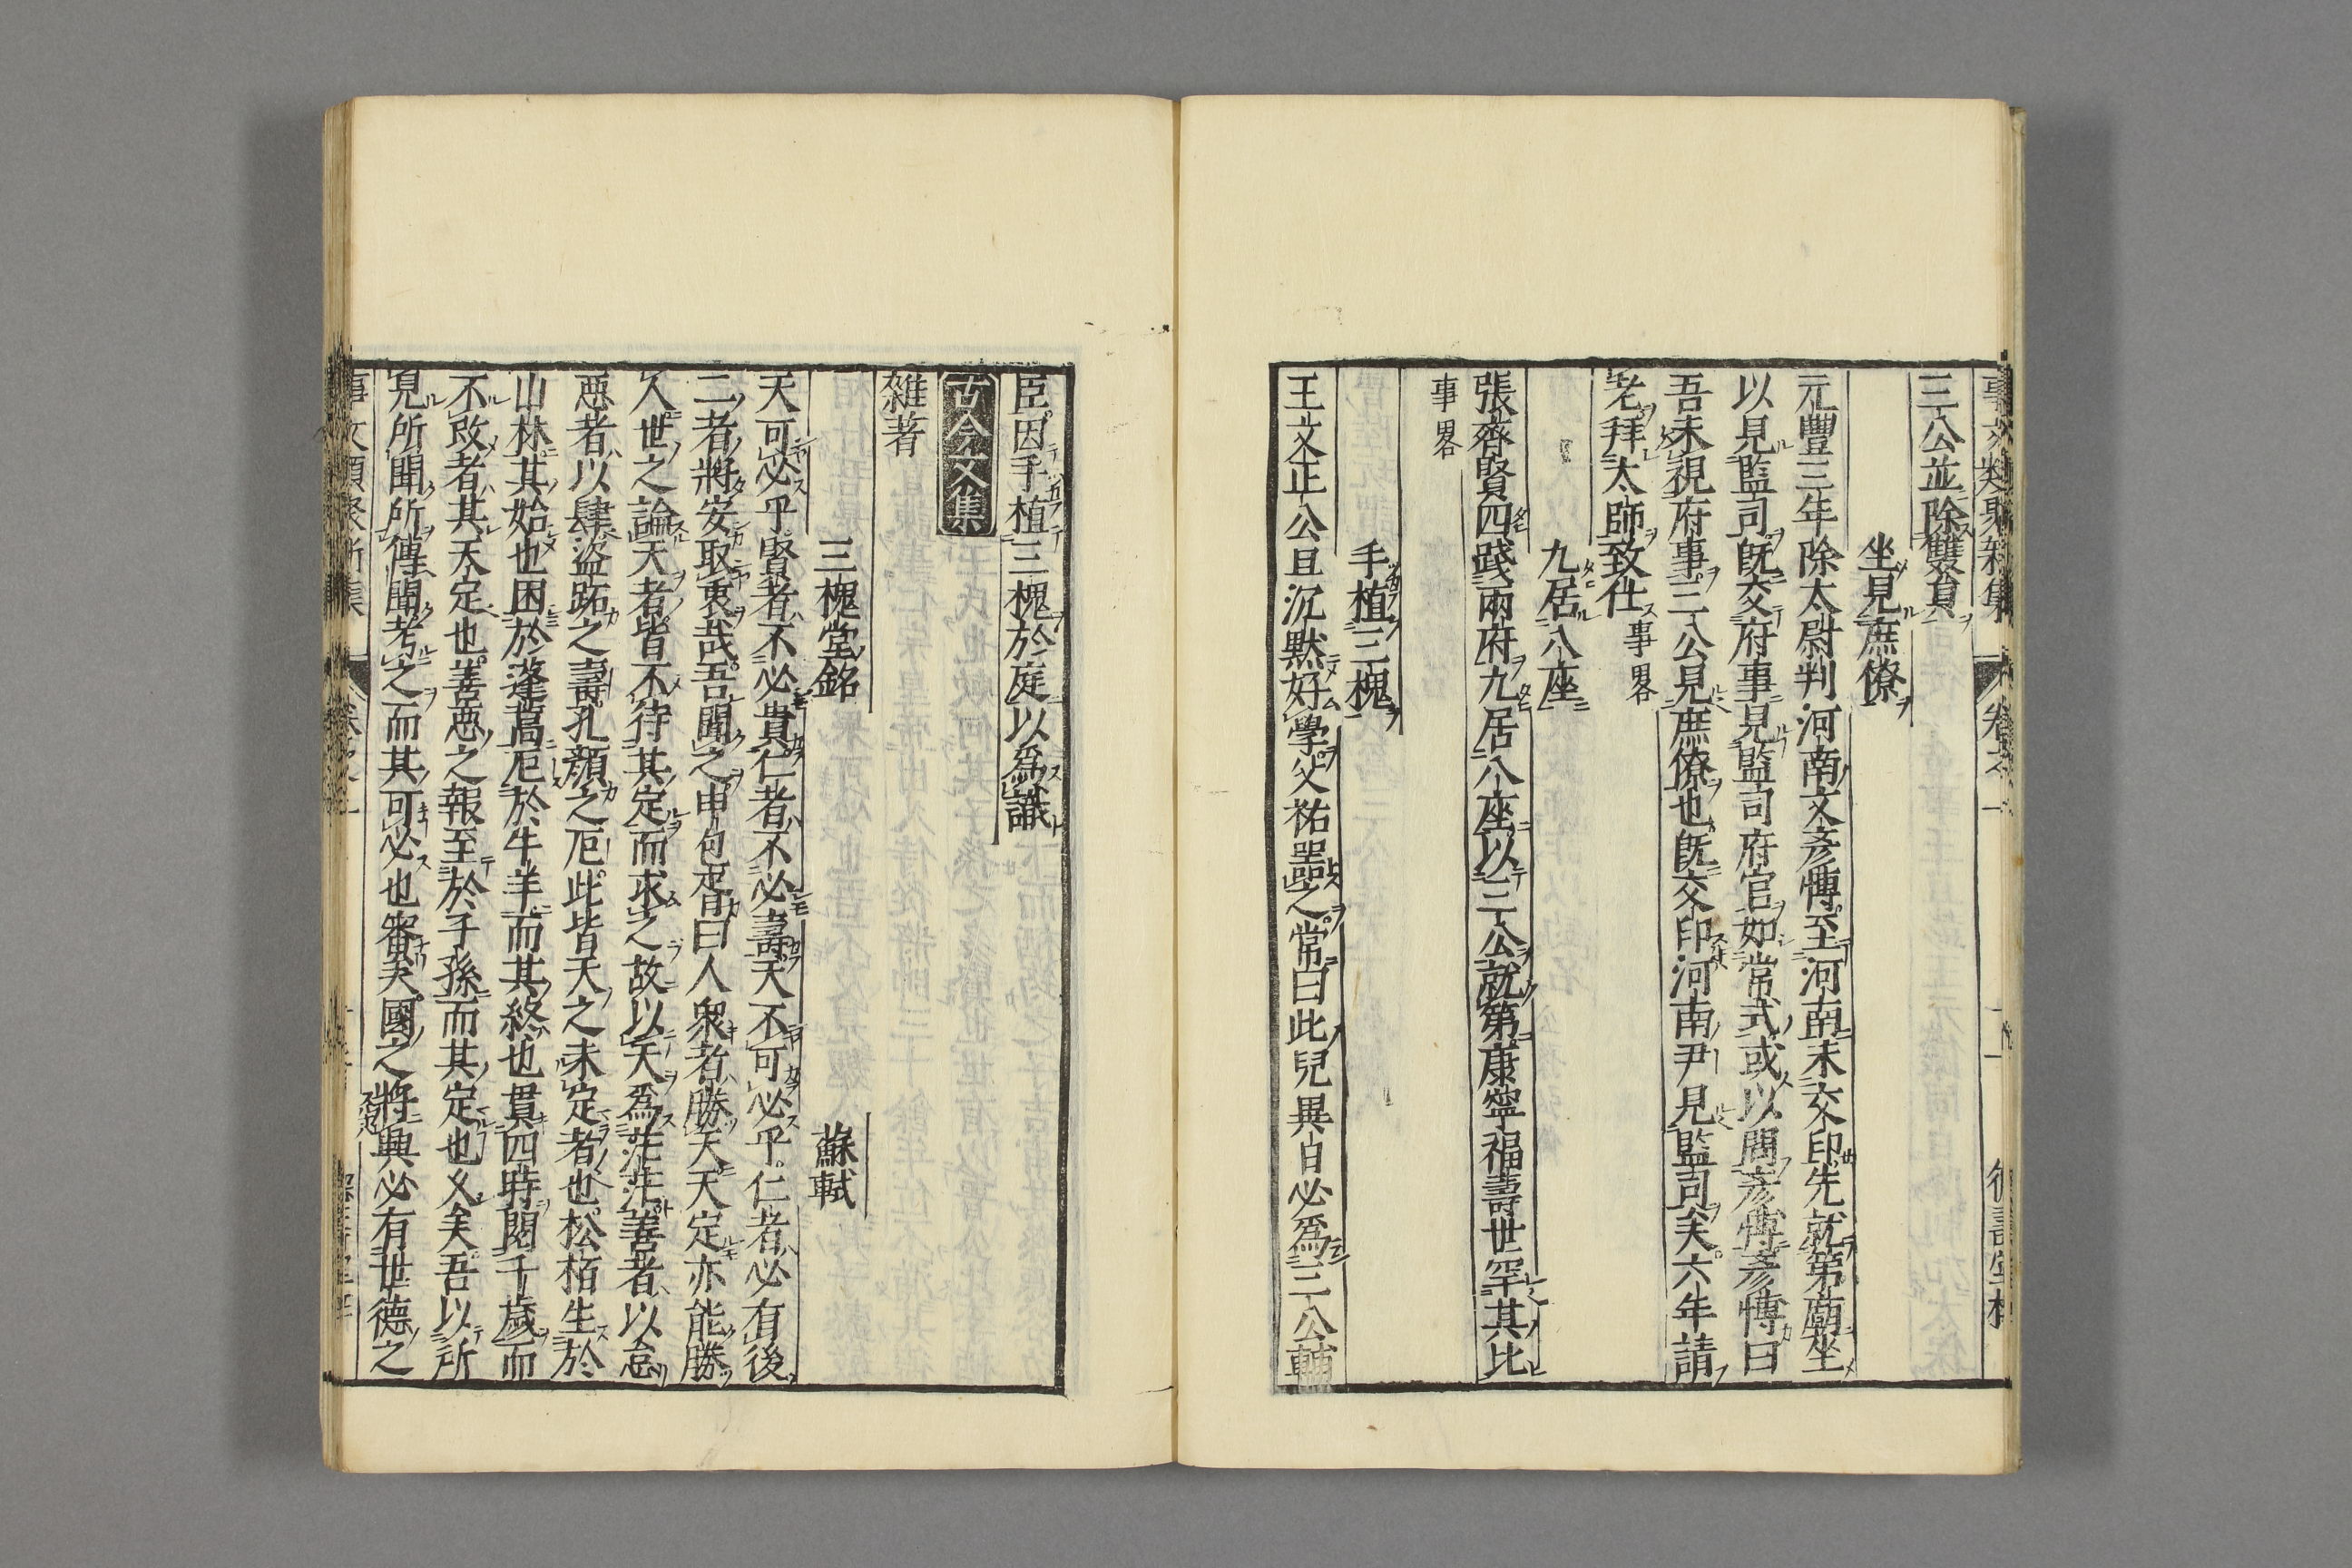 三公並除雙員
坐見庶僚
元豐三年除太尉判河南文彥博至河南未交印先就第廟坐
以見監司既交府事見監司府官如常式或以問彥博彥博曰
吾未視府事三公見庶僚也既交印河南尹見監司矣六年請
老拜太師致仕事畧
九居八座
張齊賢四踐兩府九居八座以三公就第康寧福壽世罕其比
事畧
手植三槐
王文正公旦沉默好學父祐器之常曰此兒異日必為三公輔
臣因手植三槐於庭以為識
古今文集
雜著
三槐堂銘 蘇軾
天可必乎賢者不必貴仁者不必壽天不可必乎仁者必有後
二者將安取衷哉吾聞之申包胥曰人衆者勝天天定亦能勝
人世之論天者皆不待其定而求之故以天為茫茫善者以怠
惡者以肆盜跖之壽孔顏之厄此皆天之未定者也松栢生於
山林其始也困於蓬蒿厄於牛羊而其終也貫四時閱千歲而
不改者其天定也善惡之報至於子孫而其定也久矣吾以所
見所聞所傳聞考之而其可必也審矣國之將興必有世德之